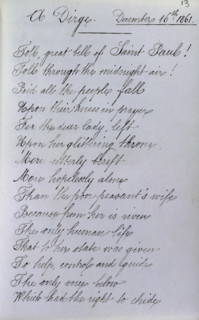 13
A Dirge. December 16th 1861.
Toll, great bell of Saint Paul!
Toll through the midnight air!
Bid all the people fall
Upon their knees in prayer
For the dear lady, left
Upon her glittering throne,
More utterly bereft
More hopelessly alone
Than the poor peasant's wife
Because from her is riven
The only human life
That to her state was given
To help, control and guide
The only voice below
Which had the right to chide